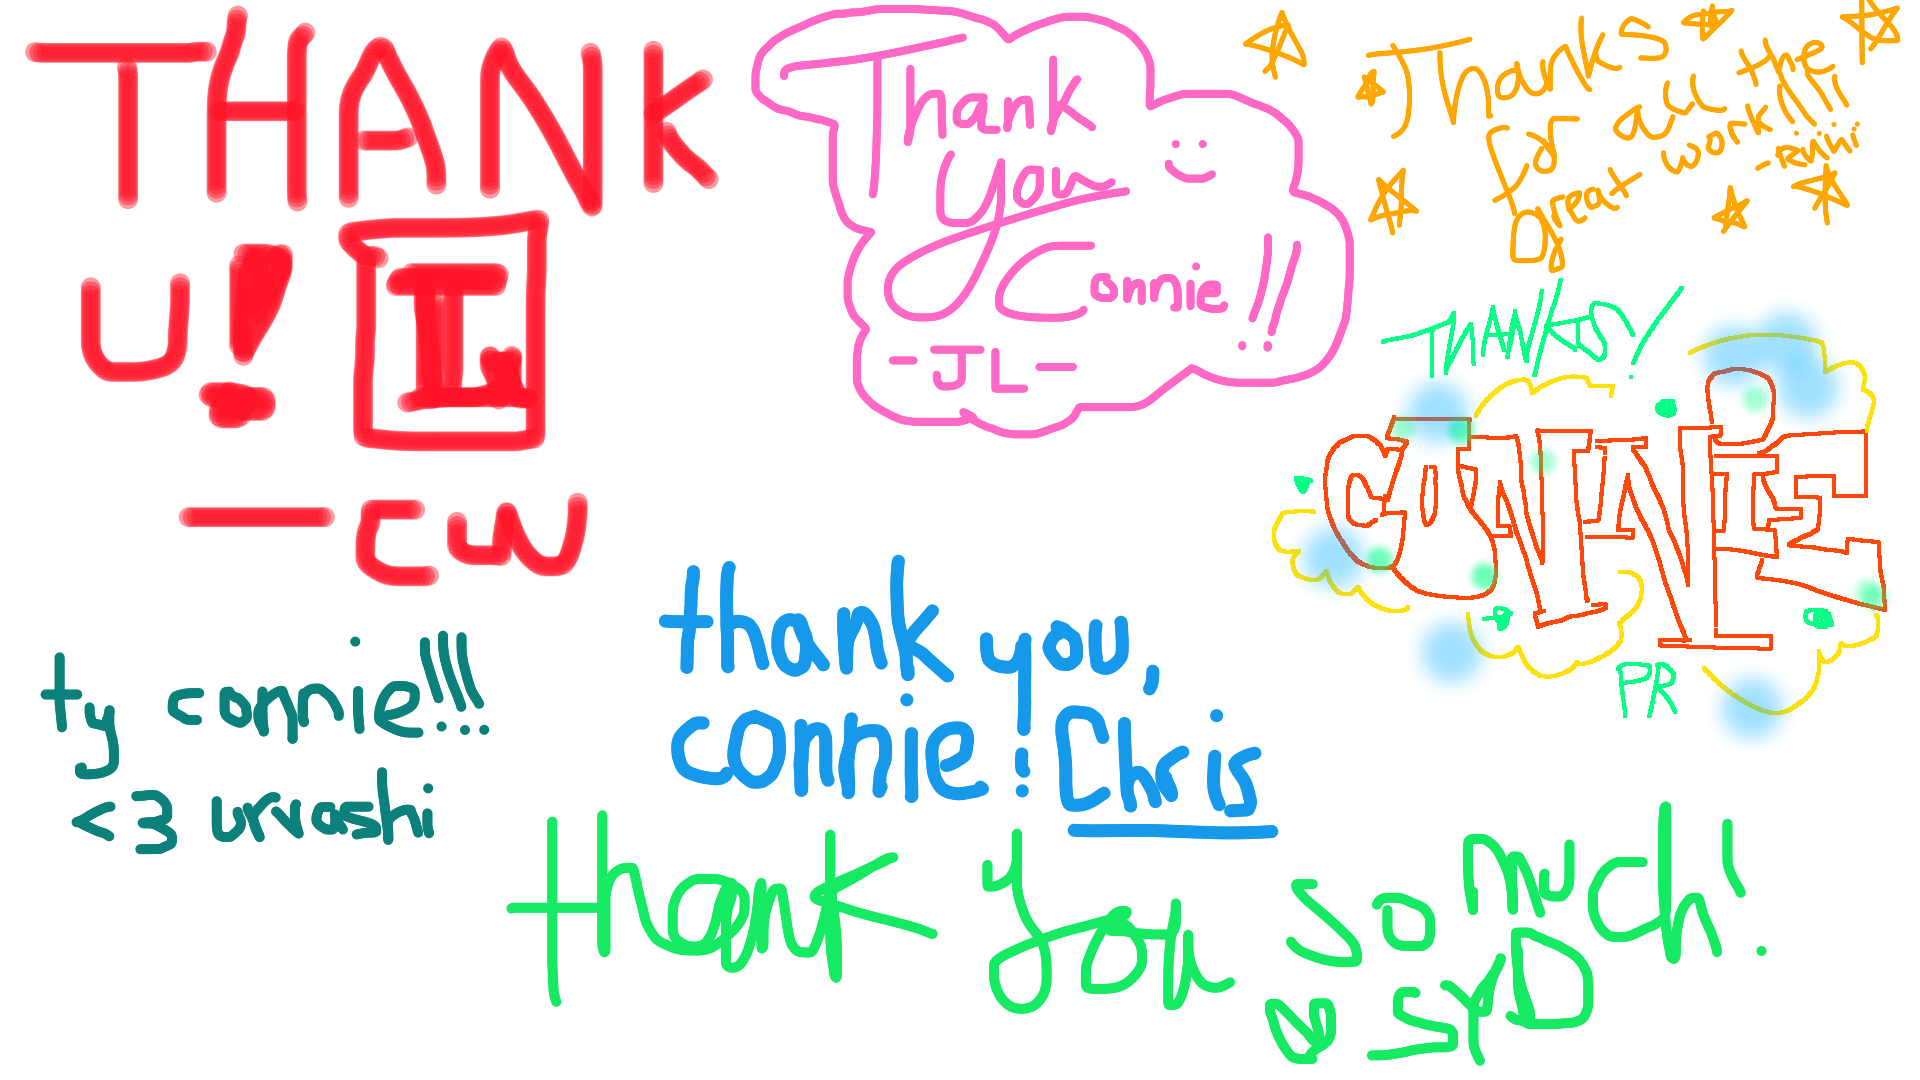 THANK
U! I.
—CW
Thank
you
Connie!!
-JL-
Thanks
for all the
great work!!!
-Ruihi
THANKS!
CONNIE
PR
ty connie!!!
<3 urvashi
thank you,
connie! Chris
thank you so much!
SYD